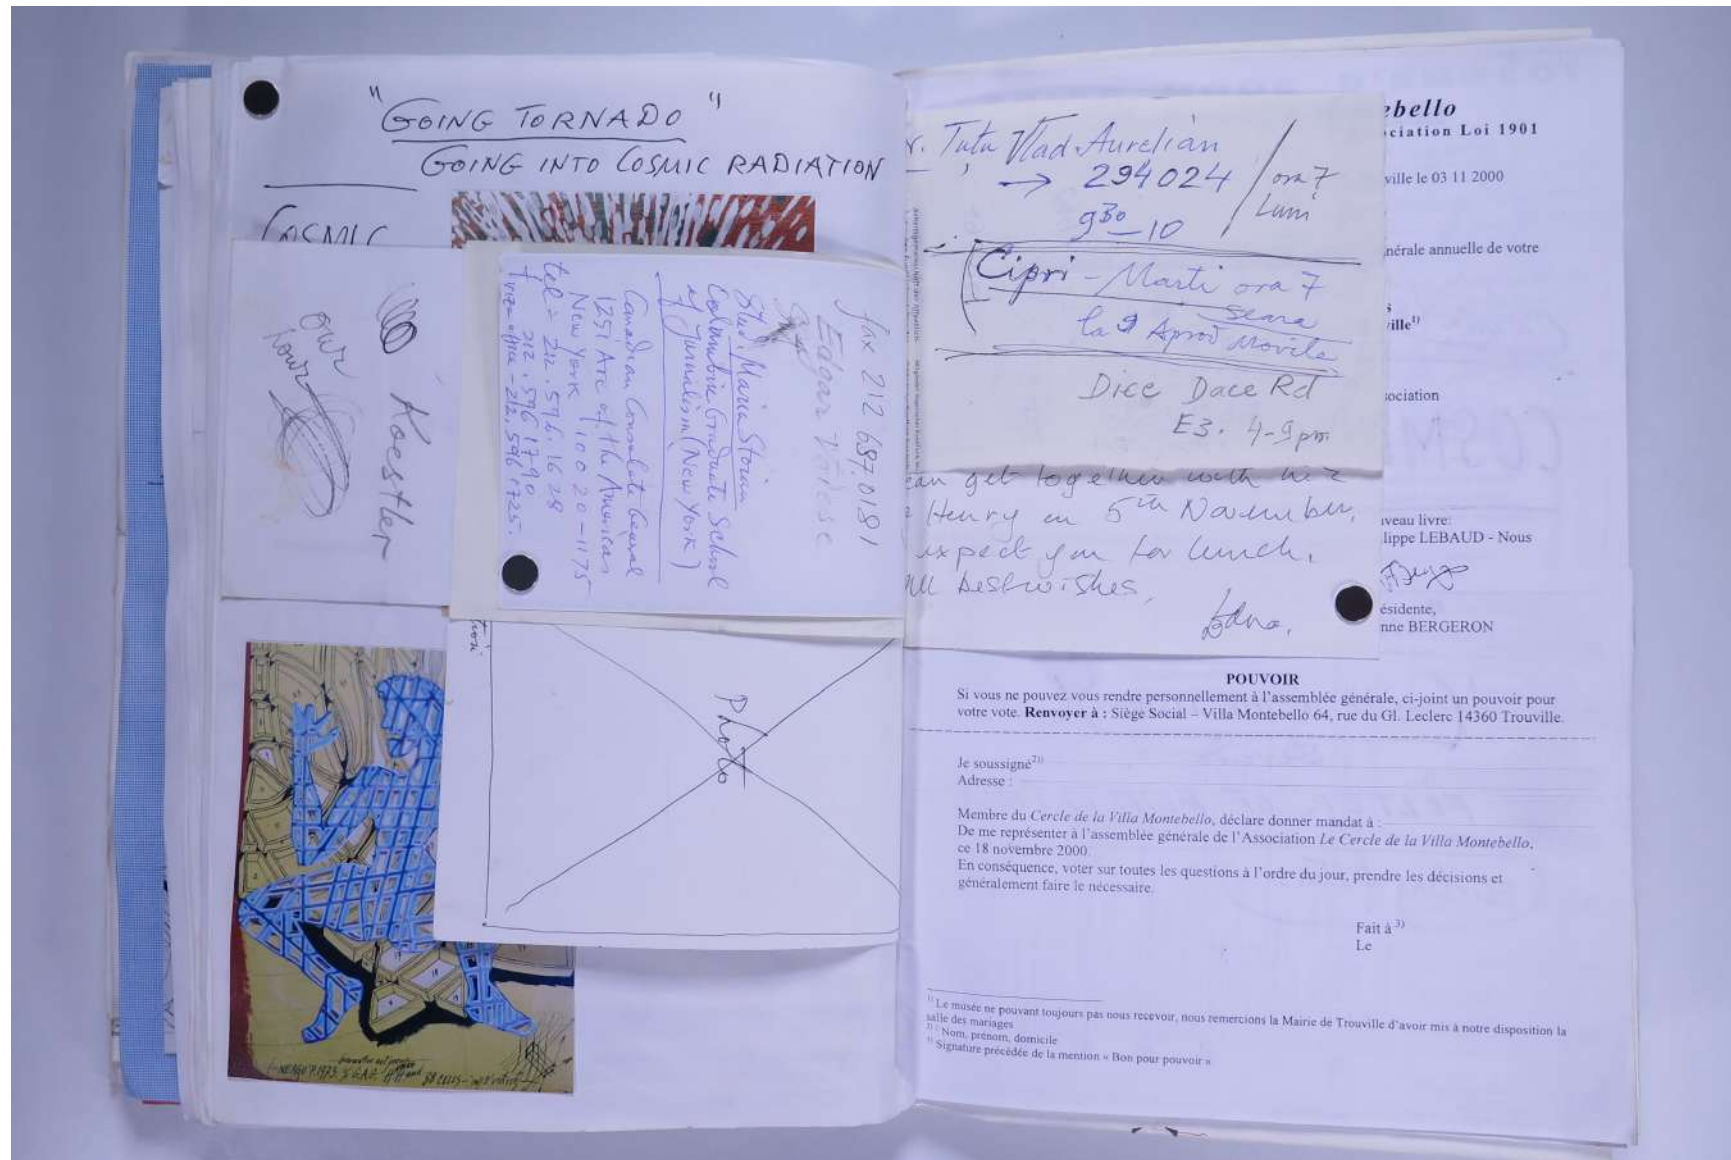 "GOING TORNADO"
GOING INTO COSMIC RADIATION
COSMIC
our
hour
Koestler
fax 212 687.0181
Edgar
Stud. Maria Stoian
Columbia Graduate School
of Jurnalism (New York)
Canadian Consulate General
1251 Ave of the Americas
New York 10020-1175
tel = 212.596.1628
212.596 1790
212.596 1725.
Photo
NEAGU P. 1973.
r. Tutu Vlad Aurelian
→ 294024 / ora 7
Luni
9 30 — 10
Cipri - Marti ora 7
Seara
la Aprod Movila
Dice Dace Rd
E3. 4-9 pm
can get together with
Henry on 5th November,
expect you for lunch.
all best wishes,
Edna.
ebello
ociation Loi 1901
ville le 03 11 2000
nérale annuelle de votre
s
ville1)
sociation
uveau livre:
ilippe LEBAUD - Nous
ésidente,
nne BERGERON
POUVOIR
Si vous ne pouvez vous rendre personnellement à l'assemblée générale, ci-joint un pouvoir pour
votre vote. Renvoyer à : Siège Social – Villa Montebello 64, rue du Gl. Leclerc 14360 Trouville.
Je soussigné2)
Adresse :
Membre du Cercle de la Villa Montebello, déclare donner mandat à :
De me représenter à l'assemblée générale de l'Association Le Cercle de la Villa Montebello,
ce 18 novembre 2000.
En conséquence, voter sur toutes les questions à l'ordre du jour, prendre les décisions et
généralement faire le nécessaire.
Fait à 3)
Le
1) Le musée ne pouvant toujours pas nous recevoir, nous remercions la Mairie de Trouville d'avoir mis à notre disposition la
salle des mariages
2) Nom, prénom, domicile
3) Signature précédée de la mention « Bon pour pouvoir »